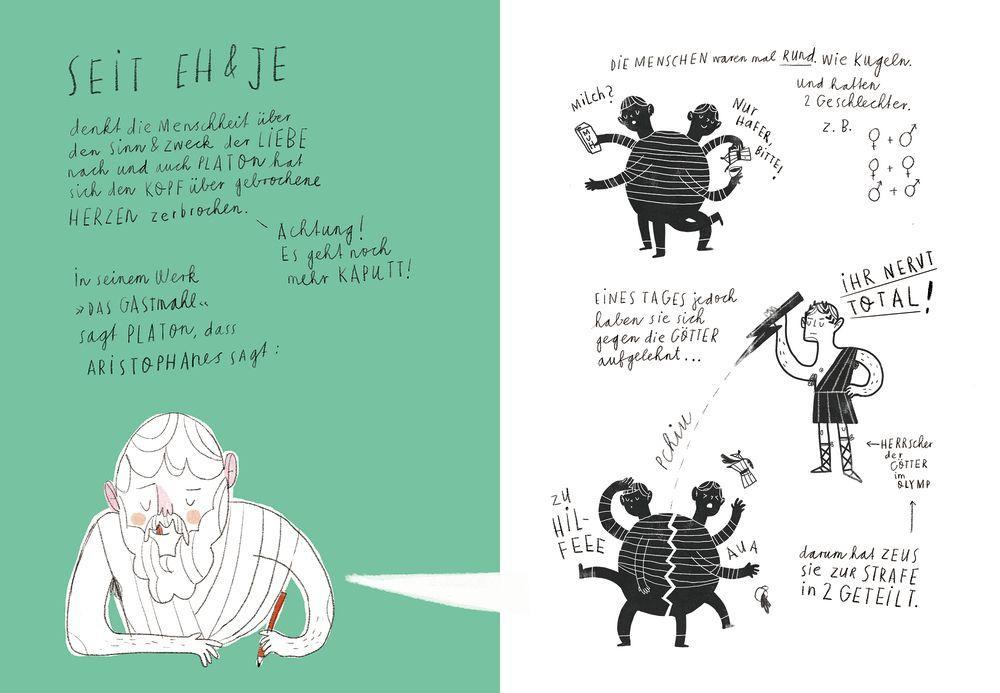 SEIT EH & JE
denkt die Menschheit über
den Sinn & Zweck der LIEBE
nach und auch PLATON hat
sich den KOPF über gebrochene
HERZEN zerbrochen.
Achtung!
Es geht noch
mehr KAPUTT!
In seinem Werk
»DAS GASTMAHL«
sagt PLATON, dass
ARISTOPHANES sagt:
DIE MENSCHEN waren mal RUND. Wie Kugeln.
und hatten
2 Geschlechter.
z. B.
♀ + ♂
♀ + ♀
♂ + ♂
MILCH?
MUH
NUR
HAFER,
BITTE!
EINES TAGES jedoch
haben sie sich
gegen die GÖTTER
aufgelehnt...
IHR NERVT
TOTAL!
PCHIU
←HERRSCHER
der
GÖTTER
im
OLYMP
ZU
HIL-
FEEE
AUA
darum hat ZEUS
sie ZUR STRAFE
in 2 GETEILT.